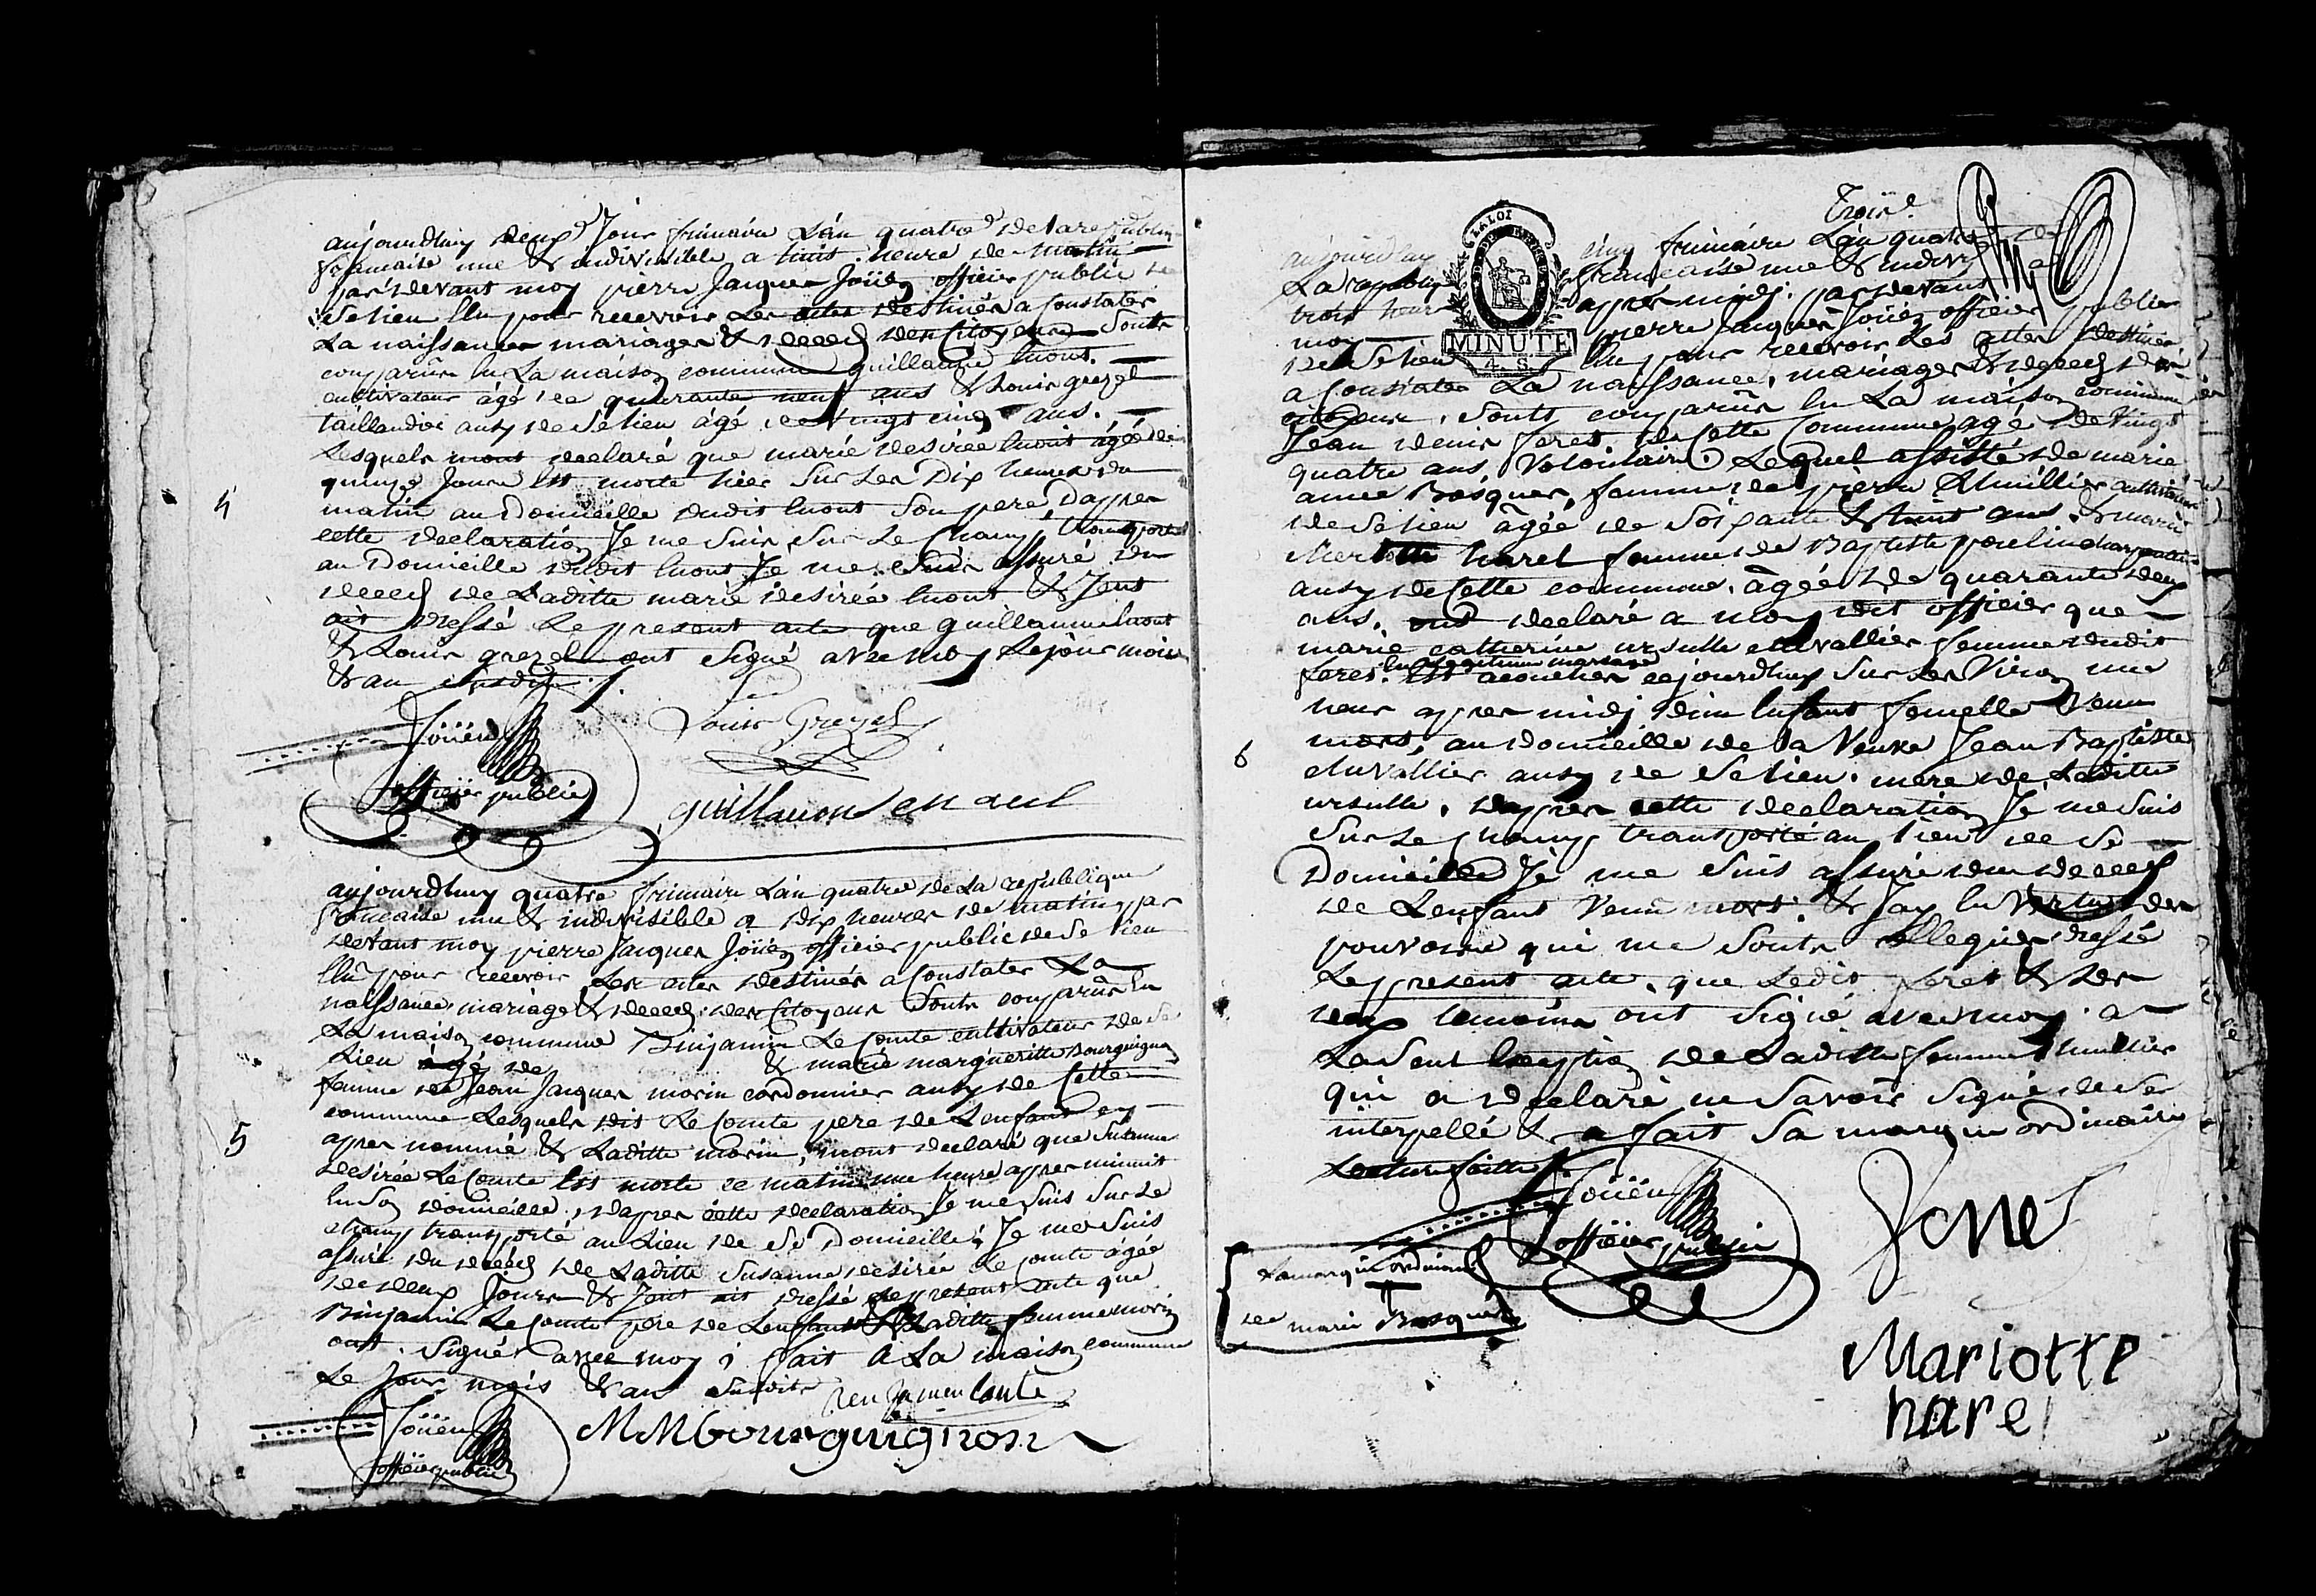 aujourdhuy deux.e Jour frimaire L'an quatre.e de la republique
francaise une & indivisible a huit heure de matin
par devant moy pierre Jacques Joüen officier public de
se lieu Elu pour recevoir Les actes destinés a Constater
La naissances mariages & deces des Citoyens Sonts
comparûs En La maison commune guillaume
cultivateur agé de quarante neuf ans & Louis grezel
taillandier ausy de Se lieu âgé de vingt cinq ans.
Lesquels mont declaré que marie desirée âgée de
quinze Jours Est morte hier Sur Les Dix heures du
matin au Domicille dudit Son pere, Dapres
cette declaration Je me Suis Sur Le Champ transporté
au Domicille dudit Je me Suis assuré du
deces de Laditte marie desirée & Jent
ait dressé Le present acte que guillaume
& Louis grezel ont Signé avec moy Le jour mois
& an susdit
4
Joüen
officier public
Louis Grezel
guillaumme
aujourdhuy quatre frimaire L'an quatre de La republique
francaise une & indivisible a dix heures de matin par
devant moy pierre Jacques Joüen officier public de Se lieu
Elu pour recevoir Les actes destinés a Constater La
naissances mariage & deces des Citoyens Sonts comparûs En
La maison commune Binjamin Le Comte cultivateur de Se
Lieu agé de & marie margueritte Bourguignon
femme de Jean Jacques morin cordonnier ausy de Cette
commune Lesquels dit Le Comte pere de Lenfant cy
apres nommé & Laditte morin, mont declaré que Susanne
desirée Le Comte Est morte ce matin une heure apres minuit
En Son domicille, dapres cette declaration Je me Suis Sur Le
champ transporté au Lieu de Se Domicille, Je me Suis
assuré du deces de Laditte Susanne desirée Le Comte âgée
de deux Jours & Jent ait dressé Le present acte que
Binjamin Le Comte pere de Lenfant & Laditte femme morin
ont Signés avec moy fait A La maison commune
Le Jour mois & an Susdits
5
Joüen
officier public
MMbourguignon
Trois.e
aujourdhuy cinq frimaire L'an quatre de
La republique francaise une & indivi
trois heures apres midj par devant
moy pierre Jacques Joüen officier public
de Se lieu Elu pour recevoir Les actes destinés
a Constater La naissance, mariages & deces des
citoyens, Sonts comparûs En La maison commune
Jean denis feret de Cette Commune agé de vingt
quatre ans Volontaire Lequel assisté de marie
anne Bosquer, femme de pierre cultivateur
de Se lieu âgée de Soixante & huit ans & marie
Mariotte harel femme de Baptiste poulin charpentier
ausy de Cette commune, âgée de quarante deux
ans. ont declaré a moy dit officier que
marie catherine ursulle chevallier femme dudit
feret. En Legitime mariage Est acouchée cejourdhuy Sur Les Viron une
heur apres midj d'un Enfant femelle Venu
mort, au Domicille de la Veuve Jean Baptiste
chevallier ausy de Se lieu. mere de Laditte
ursulle. dapres cette declaration Je me Suis
Sur Le champ transporté au lieu de Se
Domicille Je me Suis assuré du deces
de Lenfant Venu mort & Jay En Vertus des
pouvoirs qui me Sonts dellegués dressé
Le present acte, que Ledit feret & Les
deux temoins ont Signé avec moy a
La Seul Exeption de Laditte femme
qui a declaré ne Savoir Signé de Se
interpellé & a fait Sa marque ordinaire
Lecture faitte
6
LA LOI
MINUTE
4. S.
Joüen
officier public
La marque ordinaire
de marie Bosquer
feret
Mariotte
harel